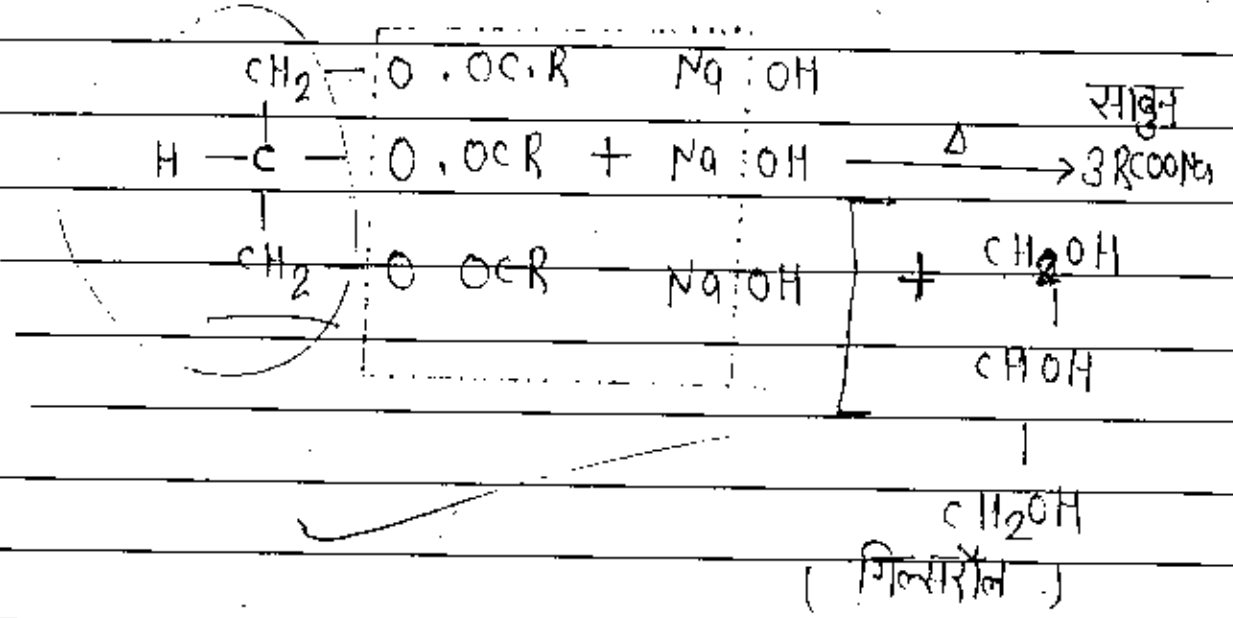 CH2 — O . OC . R Na OH
साबुन
H — C — O . OCR + Na OH Δ → 3 RCOONa
CH2 O OCR Na OH + CH2OH
CHOH
CH2OH
( गिल्सारॉल )